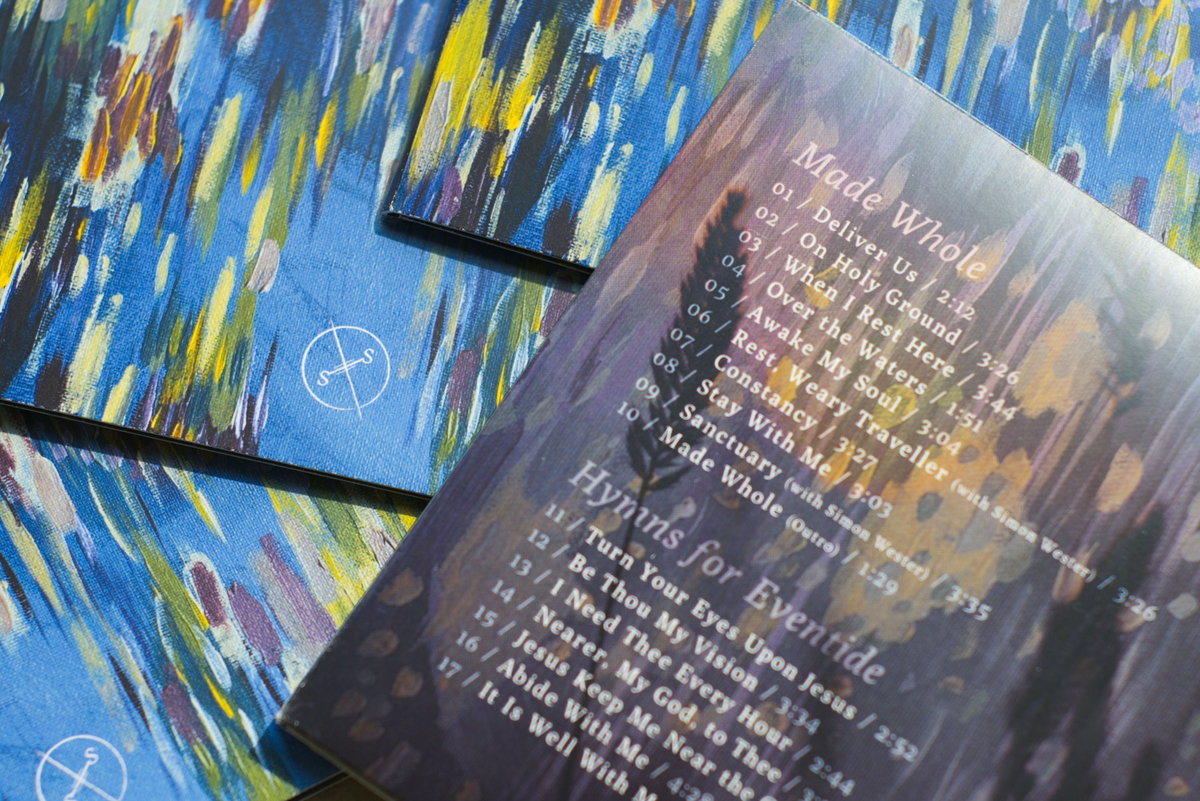 Made Whole
01 / Deliver Us / 2:12
02 / On Holy Ground / 3:26
03 / When I Rest Here / 3:44
04 / Over the Waters / 1:51
05 / Awake My Soul / 3:04
06 / Rest, Weary Traveller (with Simon Wester) / 3:26
07 / Constancy / 3:27
08 / Stay With Me / 3:03
09 / Sanctuary (with Simon Wester) / 3:35
10 / Made Whole (Outro) / 1:29
Hymns for Eventide
11 / Turn Your Eyes Upon Jesus / 2:52
12 / Be Thou My Vision / 3:34
13 / I Need Thee Every Hour / 2:44
14 / Nearer, My God, to Thee /
15 / Jesus Keep Me Near the
16 / Abide With Me /
17 / It Is Well With
S S
S